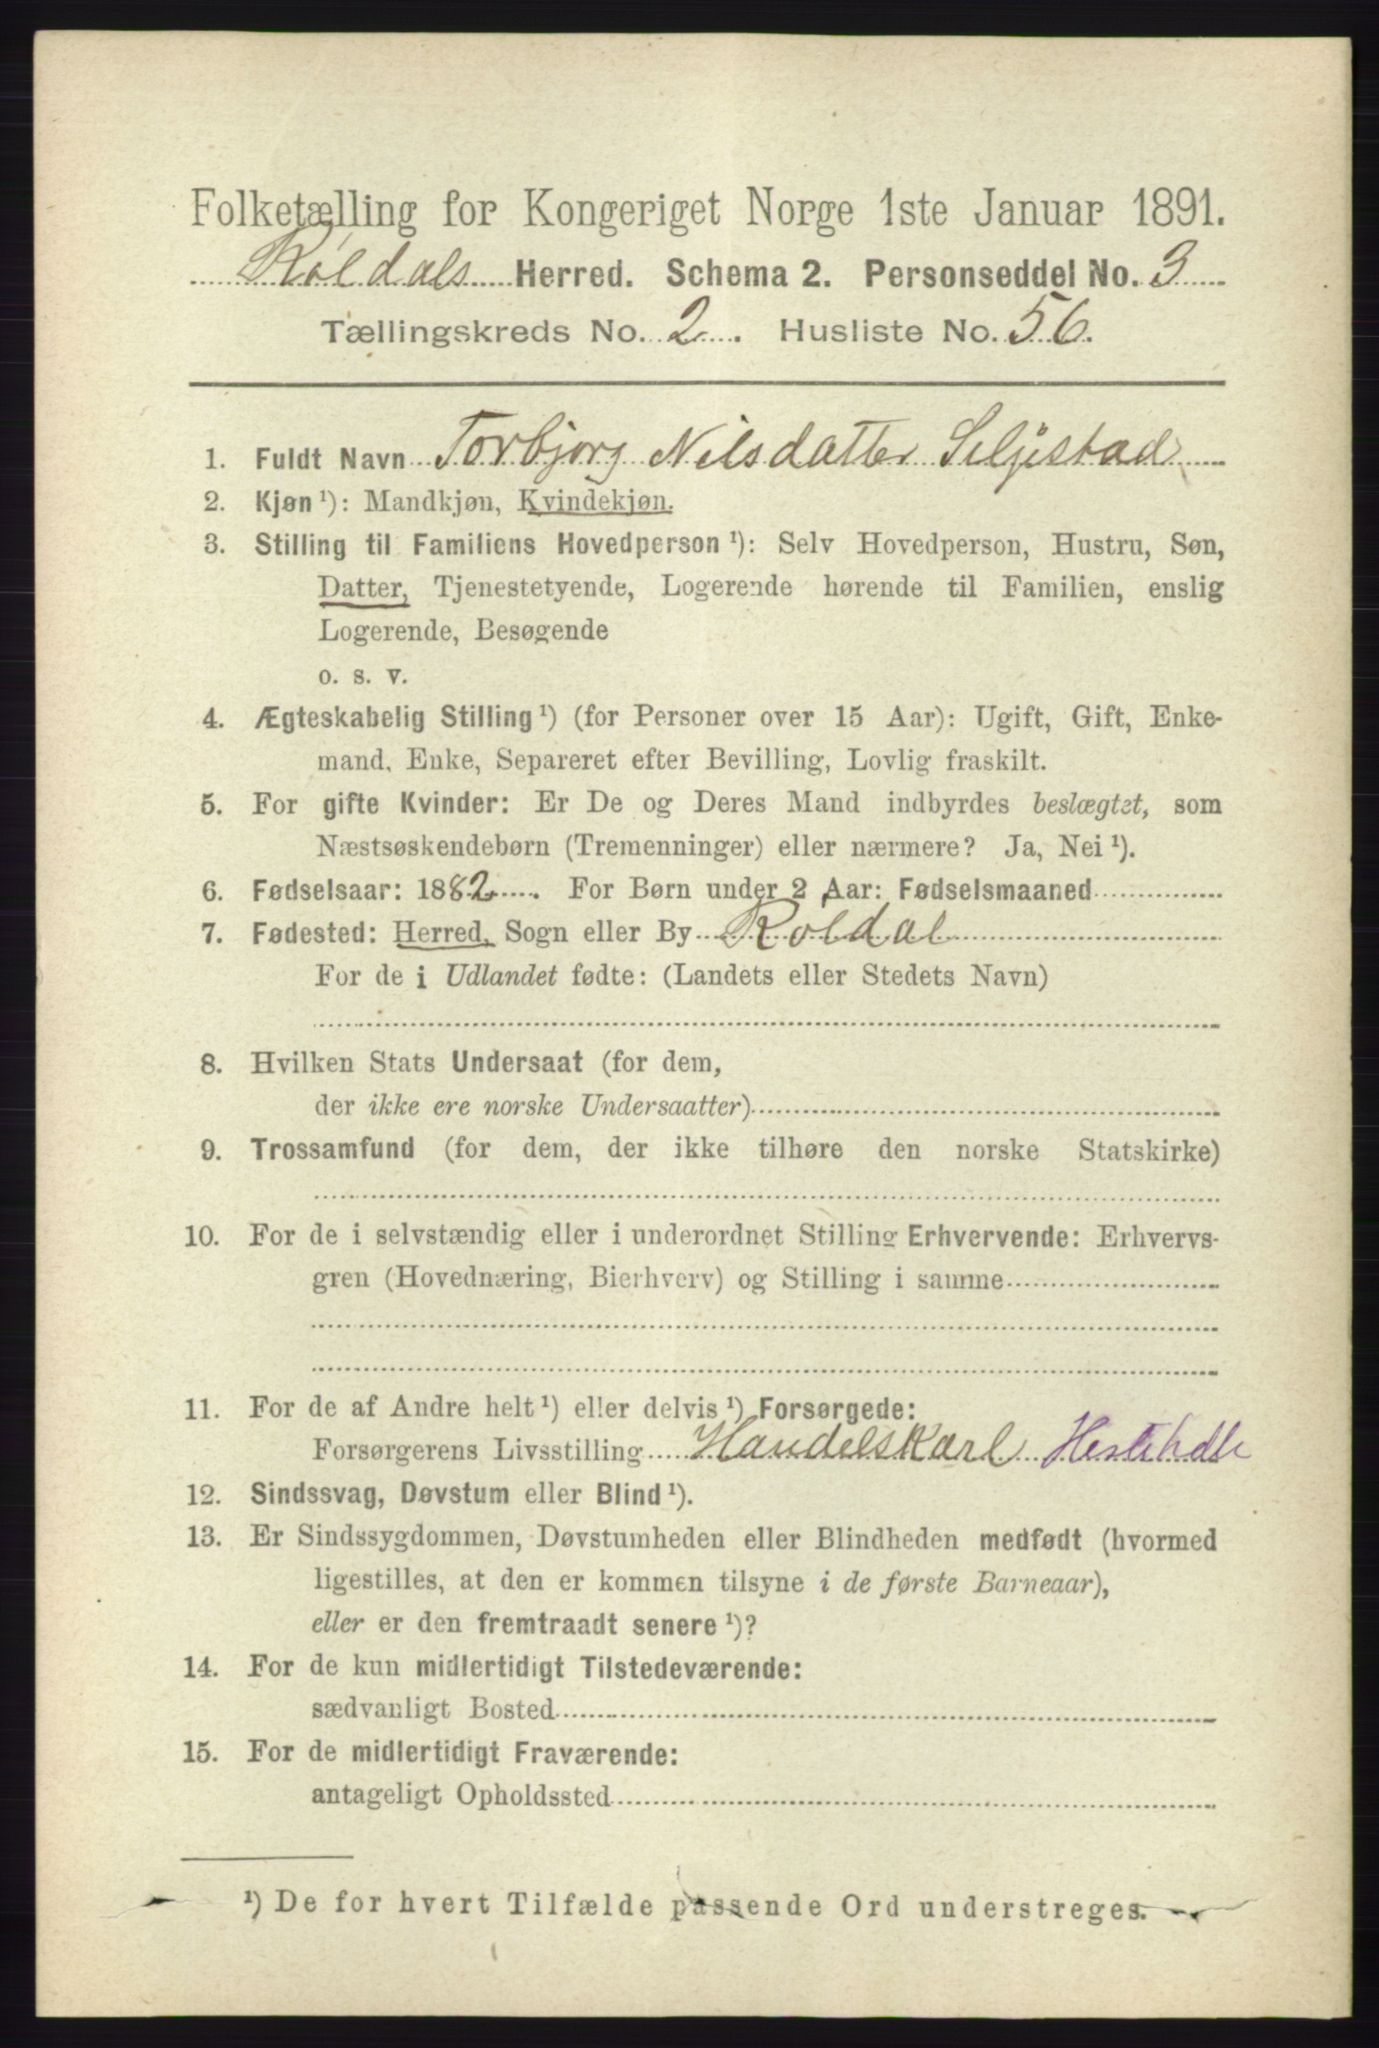 Folketælling for Kongeriget Norge 1ste Januar 1891.
Røldals Herred. Schema 2. Personseddel No. 3
Tællingskreds No. 2. Husliste No. 56.
1. Fuldt Navn Torbjorg Nilsdatter Seljestad
2. Kjøn ¹): Mandkjøn, Kvindekjøn.
3. Stilling til Familiens Hovedperson ¹): Selv Hovedperson, Hustru, Søn,
Datter, Tjenestetyende, Logerende hørende til Familien, enslig
Logerende, Besøgende
o. s. v.
4. Ægteskabelig Stilling ¹) (for Personer over 15 Aar): Ugift, Gift, Enke-
mand, Enke, Separeret efter Bevilling, Lovlig fraskilt.
5. For gifte Kvinder: Er De og Deres Mand indbyrdes beslægtet, som
Næstsøskendebørn (Tremenninger) eller nærmere? Ja, Nei ¹).
6. Fødselsaar: 1882. For Børn under 2 Aar: Fødselsmaaned
7. Fødested: Herred, Sogn eller By Roldal
For de i Udlandet fødte: (Landets eller Stedets Navn)
8. Hvilken Stats Undersaat (for dem,
der ikke ere norske Undersaatter)
9. Trossamfund (for dem, der ikke tilhøre den norske Statskirke)
10. For de i selvstændig eller i underordnet Stilling Erhvervende: Erhvervs-
gren (Hovednæring, Bierhverv) og Stilling i samme
11. For de af Andre helt ¹) eller delvis ¹) Forsørgede:
Forsørgerens Livsstilling Handelskarl Hestehdlr
12. Sindssvag, Døvstum eller Blind ¹).
13. Er Sindssygdommen, Døvstumheden eller Blindheden medfødt (hvormed
ligestilles, at den er kommen tilsyne i de første Barneaar),
eller er den fremtraadt senere ¹)?
14. For de kun midlertidigt Tilstedeværende:
sædvanligt Bosted
15. For de midlertidigt Fraværende:
antageligt Opholdssted
¹) De for hvert Tilfælde passende Ord understreges.